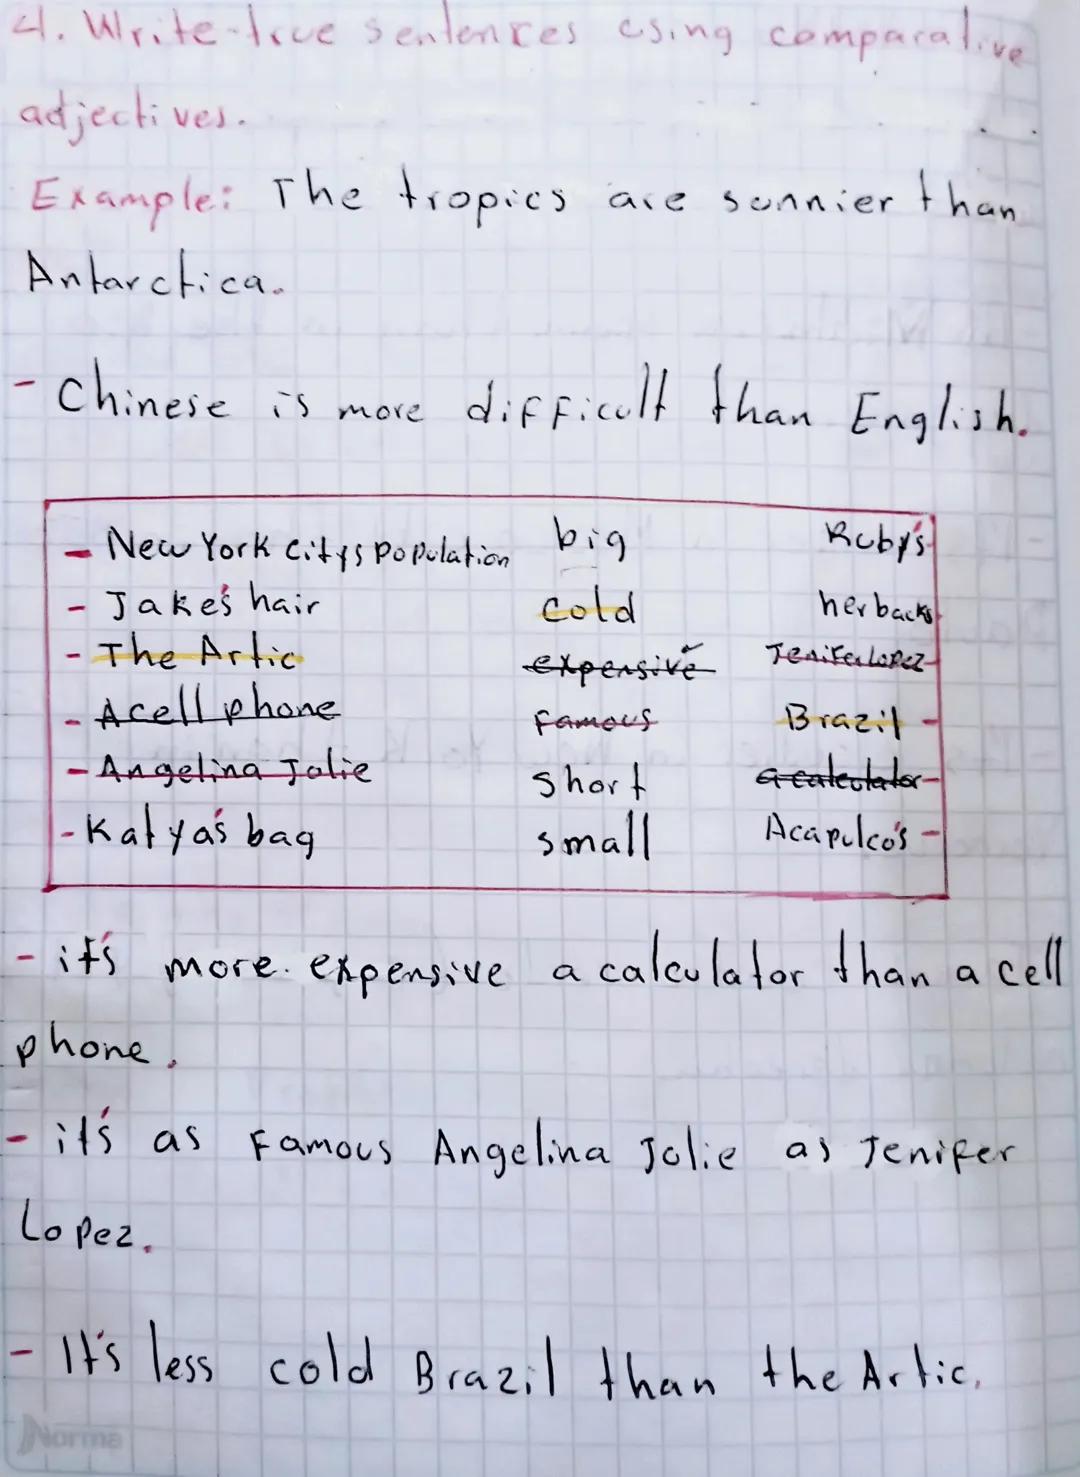 4. Write true sentences using comparative
adjectives.
Example: The tropics are sunnier than
Antarctica.
- Chinese is more difficult than English.
- New York City's population big Ruby's
- Jake's hair cold her backs
- The Artic expensive Jenifer Lopez
- A cell phone famous Brazil -
- Angelina Jolie short a calculator -
- Katya's bag small Acapulco's -
- it's more expensive a calculator than a cell
phone.
- it's as famous Angelina Jolie as Jenifer
Lopez.
- It's less cold Brazil than the Artic.
Norma